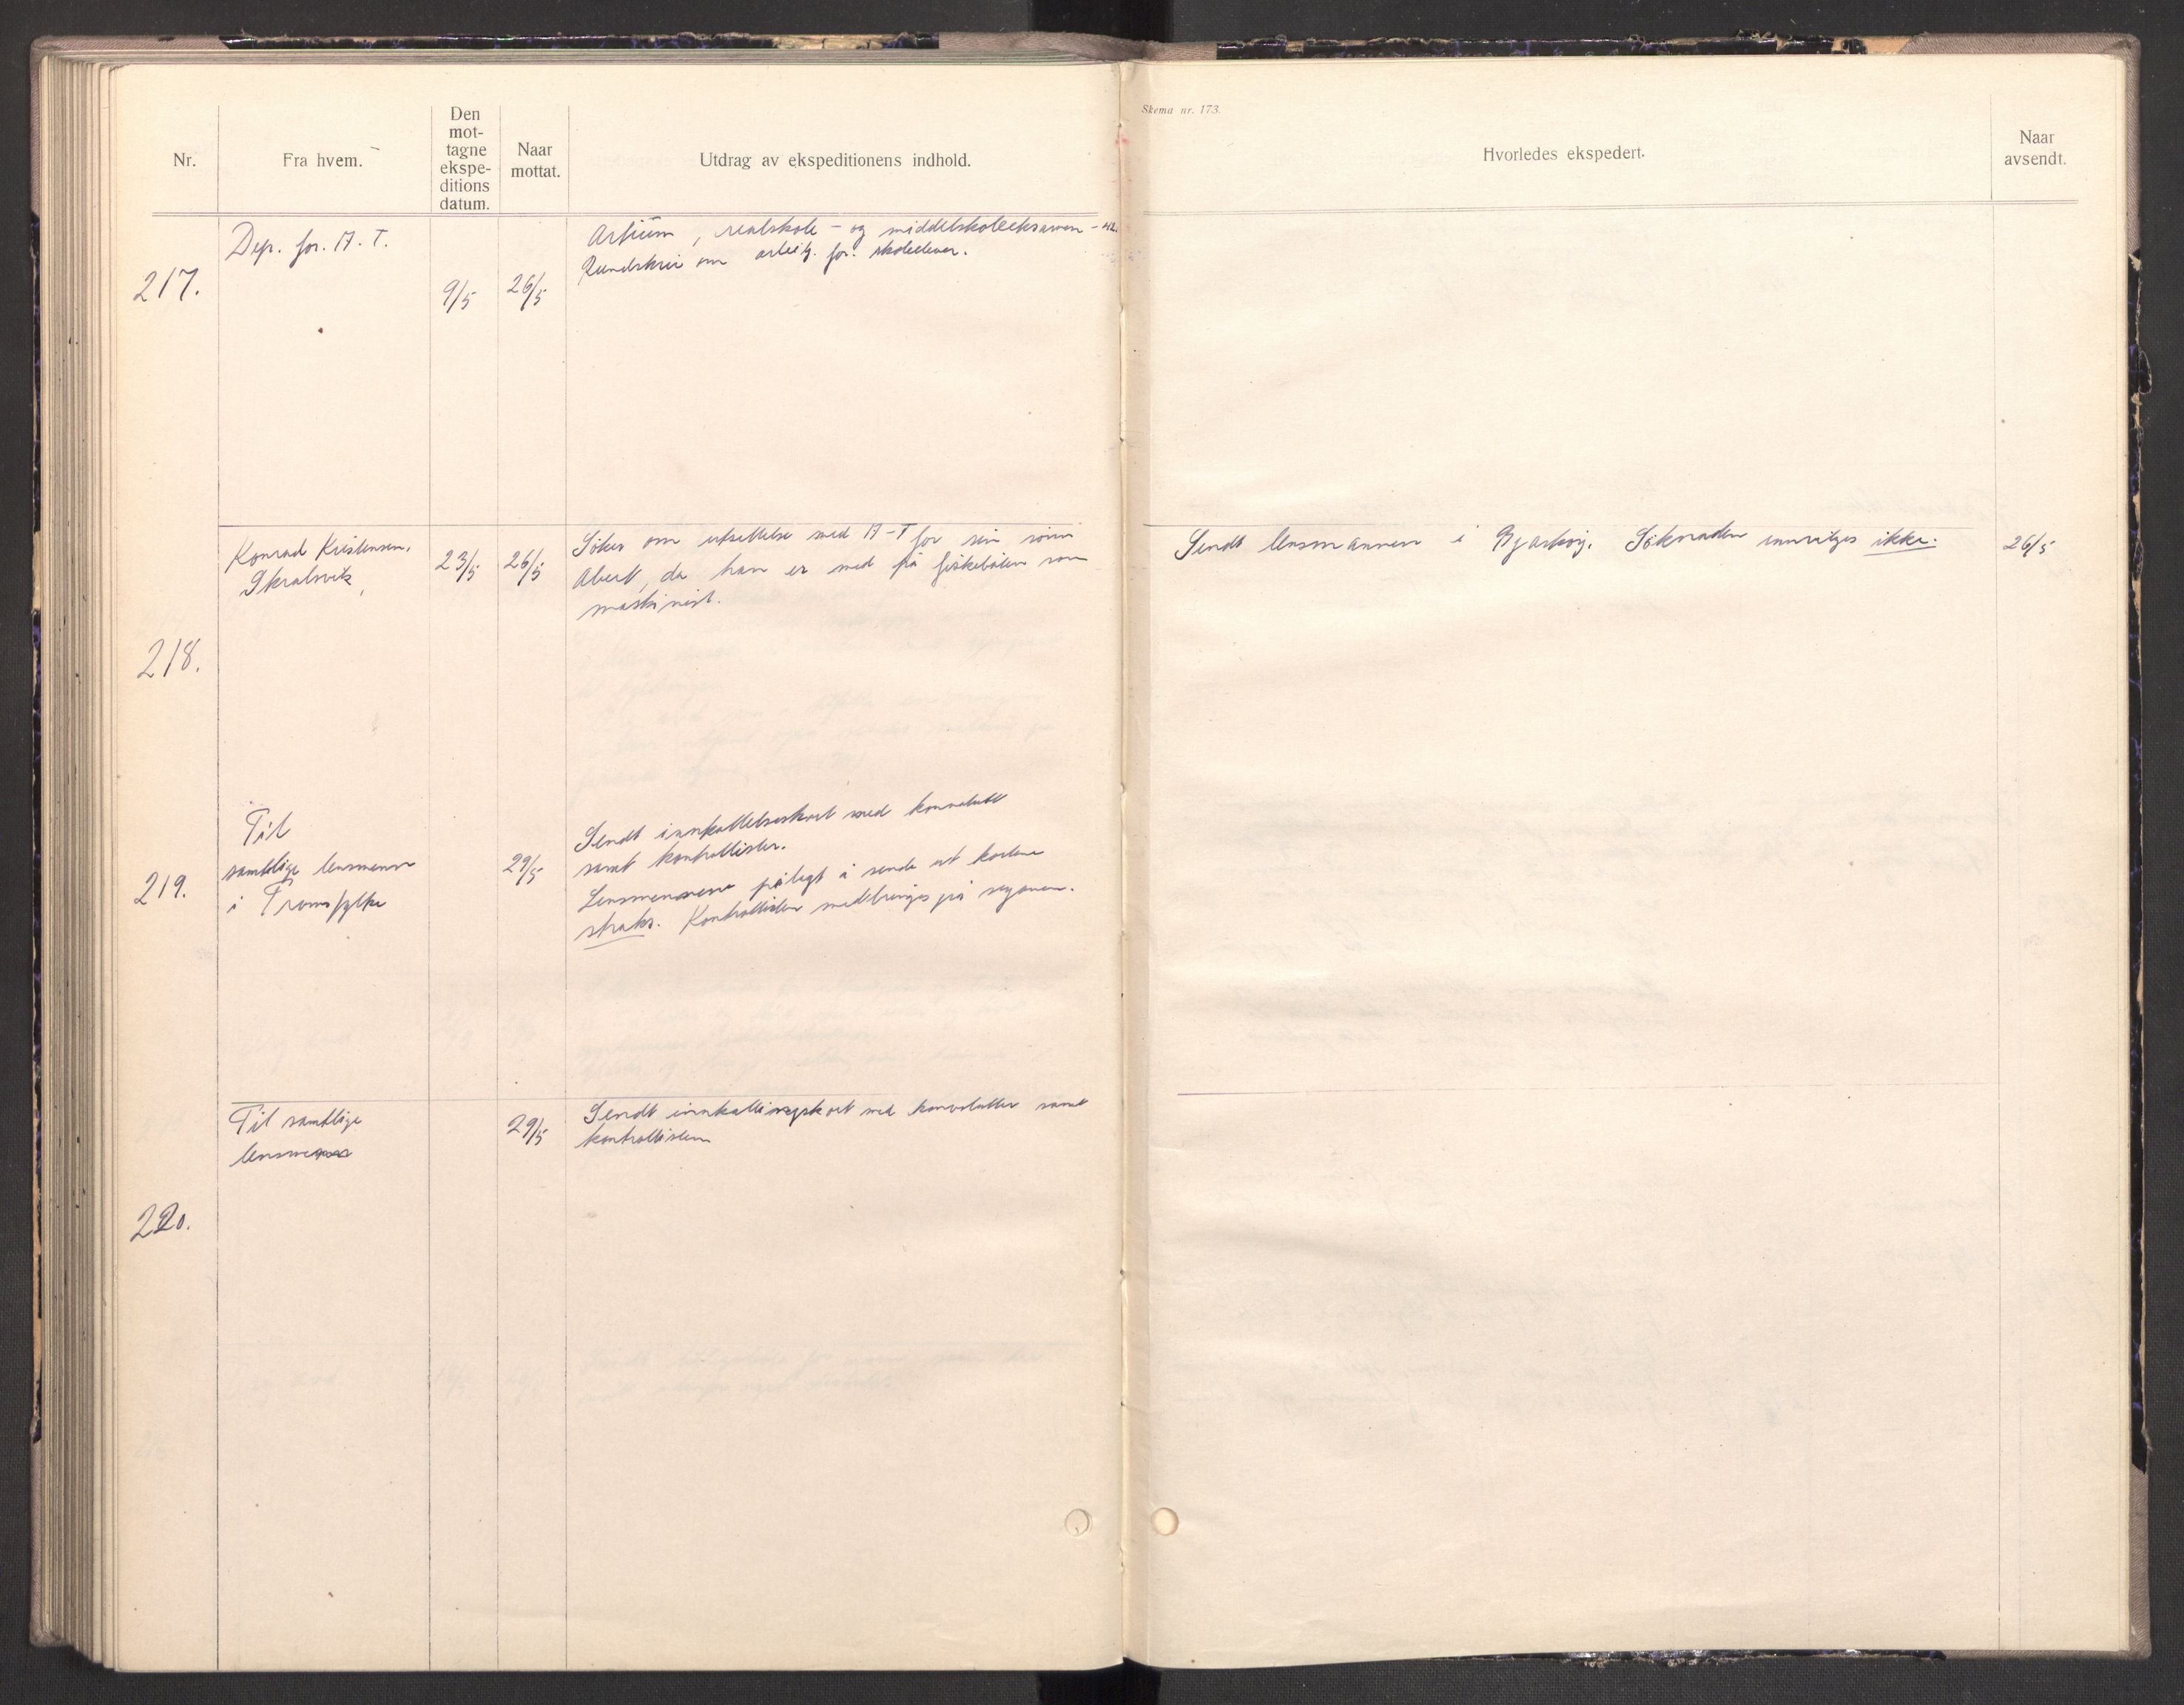 Skema nr. 173.
Nr.
Fra hvem.
Den
mot-
tagne
ekspe-
ditions
datum.
Naar
mottat.
Utdrag av ekspeditionens indhold.
Hvorledes ekspedert.
Naar
avsendt.
217.
Dep. for. A. T.
9/5
26/5
Artium, realskole - og middelskoleeksamen - 42.
Rundskriv om arbeidstj. for. skoleelever.
218.
Konrad Kristensen,
Skralsvik,
23/5
26/5
Søkes om utsettelse med A-T for sin sønn
Abert, da han er med på fiskebåten som
maskinist.
Sendt lensmannen i Bjarkøy. Søknaden innvilges ikke.
26/5
219.
Til
samtlige lensmenn
i Troms fylke
29/5
Sendt innkallelseskort med konvolutt
samt kontrollister.
Lensmennene pålagt å sende ut kortene
straks. Kontrollisten medbringes på
220.
Til samtlige
lensmenn
29/5
Sendt innkallingskort med konvolutter samt
kontrollisten